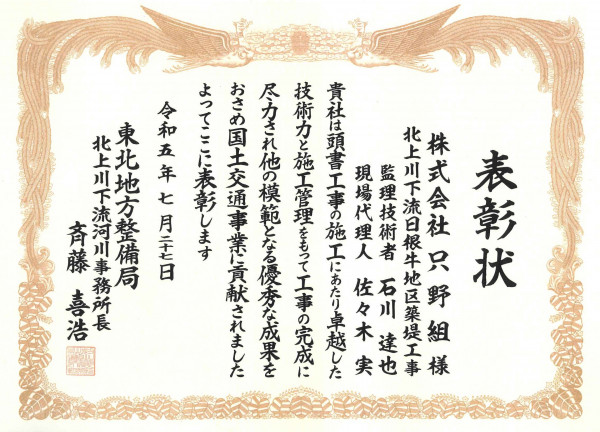 表彰状
株式会社只野組様
北上川下流日根牛地区築堤工事
監理技術者 石川達也
現場代理人 佐々木実
貴社は頭書工事の施工にあたり卓越した
技術力と施工管理をもって工事の完成に
尽力され他の模範となる優秀な成果を
おさめ国土交通事業に貢献されました
よってここに表彰します
令和五年七月二十七日
東北地方整備局
北上川下流河川事務所長
斉藤喜浩